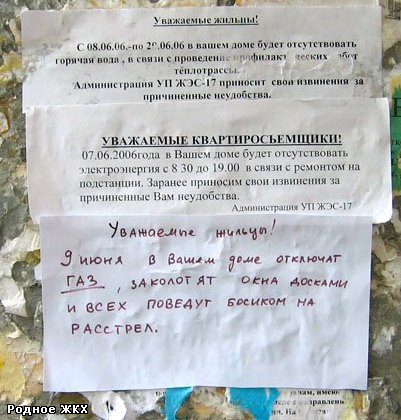 Уважаемые жильцы!
С 08.06.06.-по 20.06.06 в вашем доме будет отсутствовать
горячая вода , в связи с проведение профилактических работ
теплотрассы.
Администрация УП ЖЭС-17 приносит свои извинения за
причиненные неудобства.
УВАЖАЕМЫЕ КВАРТИРОСЬЕМЩИКИ!
07.06.2006года в Вашем доме будет отсутствовать
электроэнергия с 8 30 до 19.00 в связи с ремонтом на
подстанции. Заранее приносим свои извинения за
причиненные Вам неудобства.
Администрация УП ЖЭС-17
Уважаемые жильцы!
9 июня в Вашем доме отключат
ГАЗ , заколотят окна досками
и всех поведут босиком на
расстрел.
Родное ЖКХ